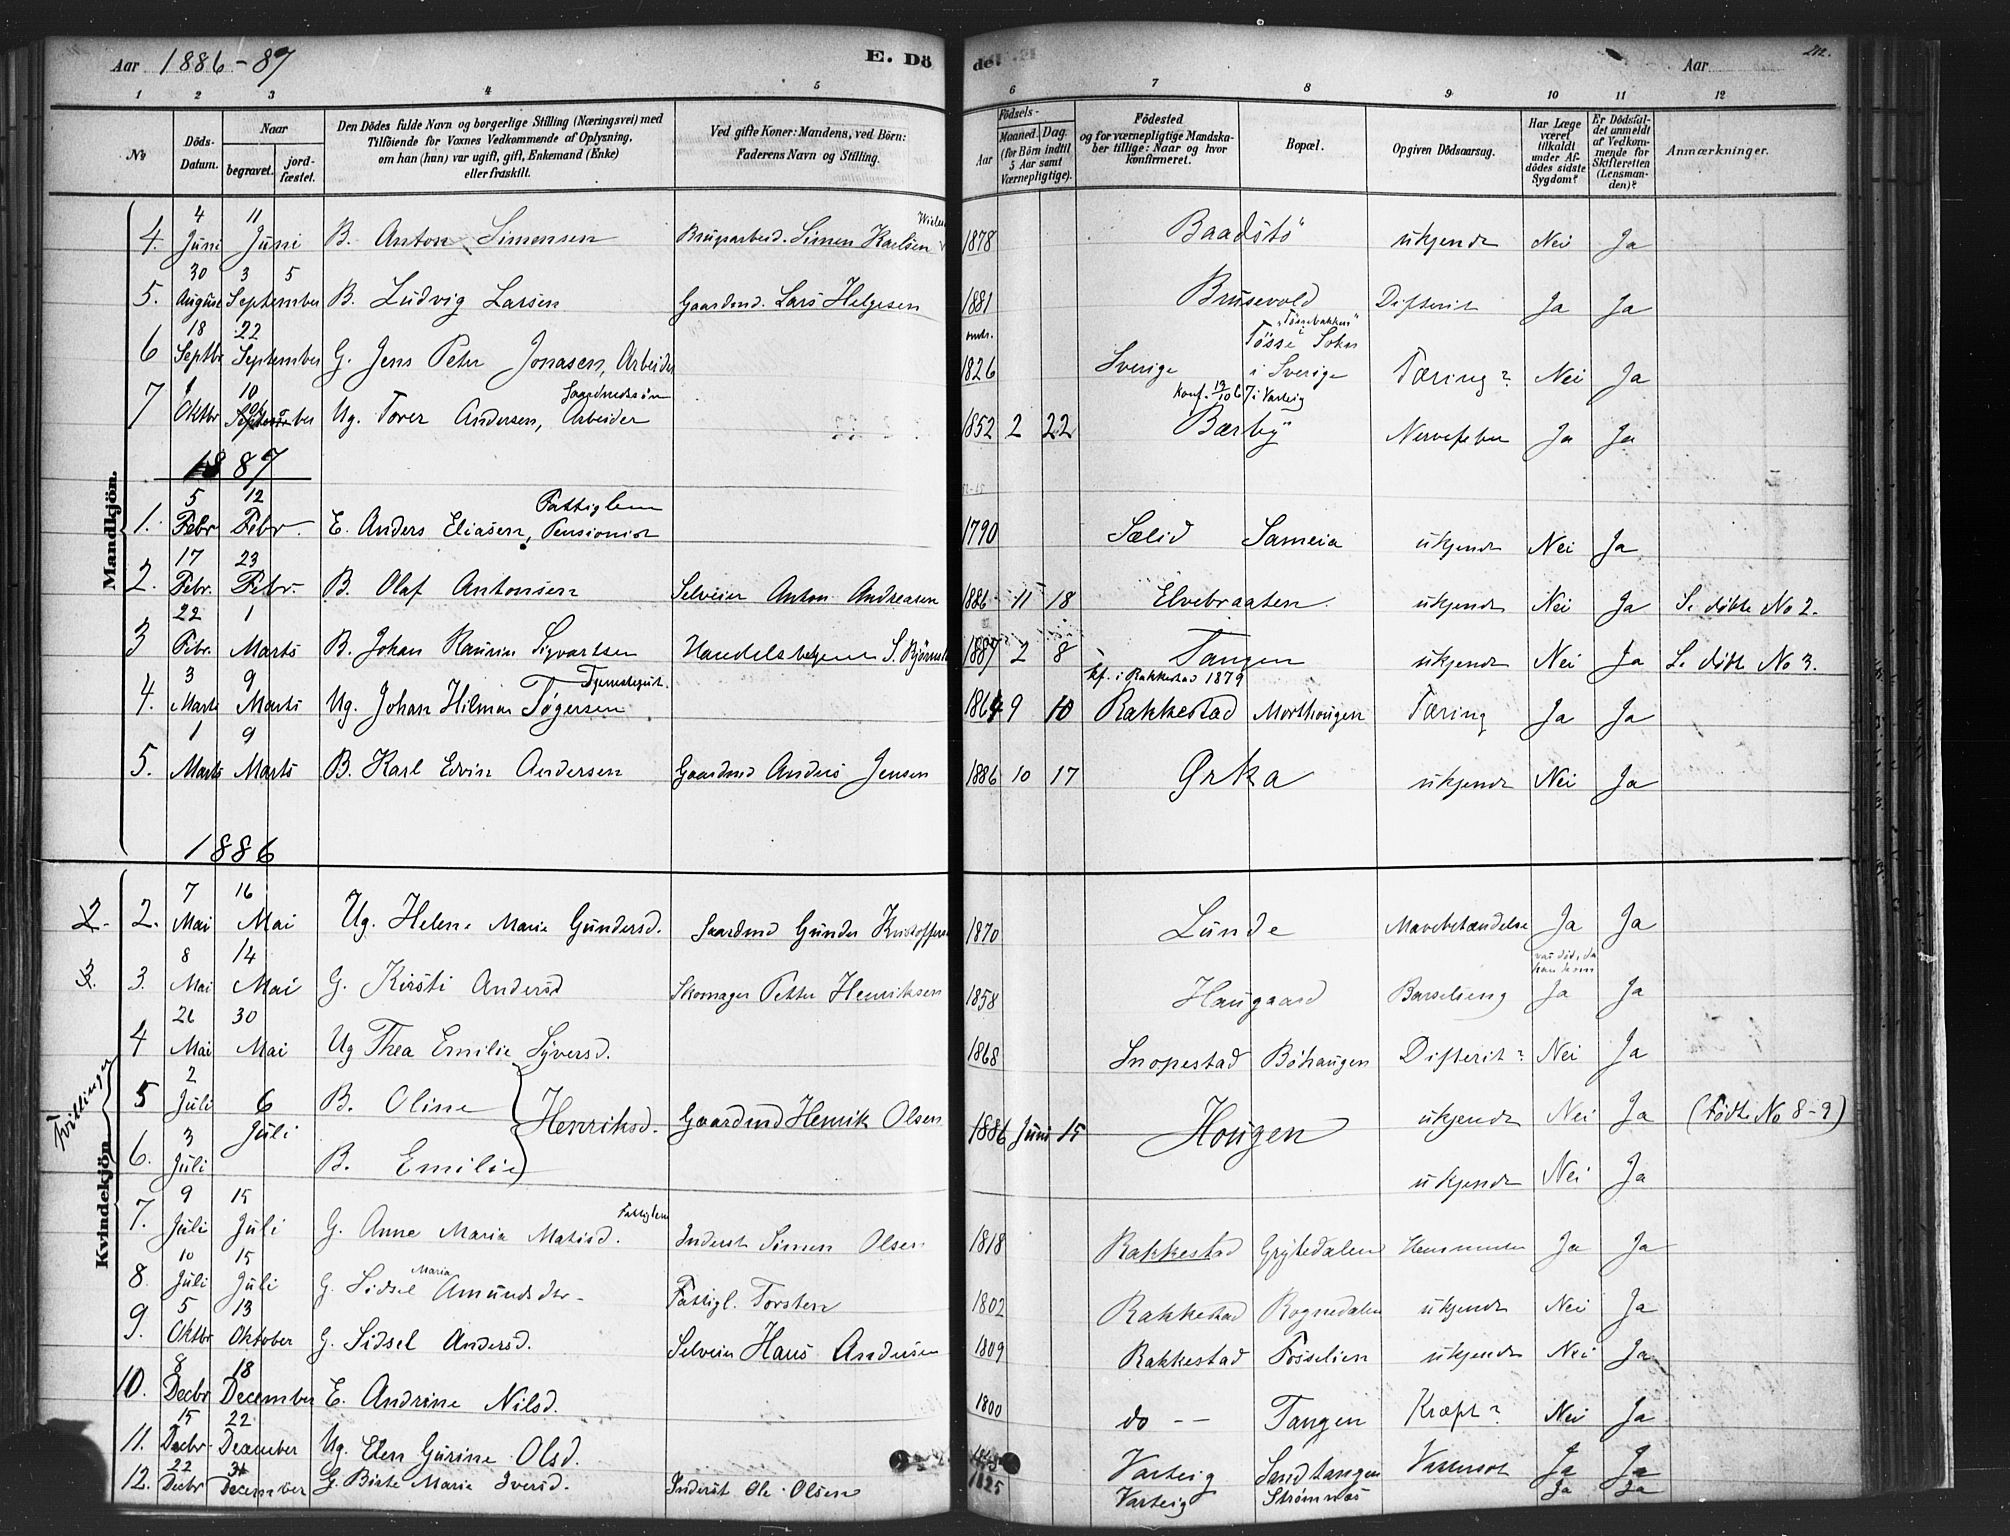 Aar 1886-87 E. Dö
1 2 3 4 5
No
Döds-Datum.
Naar
begravet. jord-fæstet.
Den Dödes fulde Navn og borgerlige Stilling (Næringsvei) med
Tilföiende for Voxnes Vedkommende af Oplysning,
om han (hun) var ugift, gift, Enkemand (Enke)
eller fraskilt.
Ved gifte Koner: Mandens, ved Börn:
Faderens Navn og Stilling.
de. Aar
6 7 8 9 10 11 12
Födsels-
Aar Maaned. Dag.
(for Börn indtil
5 Aar samt
Værnepligtige).
Födested
og for værnepligtige Mandska-
ber tillige: Naar og hvor
konfirmeret.
Bopæl.
Opgiven Dödsaarsag.
Har Læge
været
tilkaldt
under Af-
dödes sidste
Sygdom?
Er Dödsfal-
det anmeldt
af Vedkom-
mende for
Skifteretten
(Lensman-
den)?
Anmærkninger.
Mandkjön.
4. 4 Juni 11 Juni B. Anton Simensen Brugsarbeid. Simen Karlsen 1878 Baadstö ukjendt Nei Ja
5. 30 August 3 5 September B. Ludvig Larsen Gaardmd. Lars Helgesen 1881 Brusevold Difterit Ja Ja
6 18 Septbr 22 September G. Jens Peter Jonasen, Arbeider omtr. 1826 Sverige Tösse Sokn i Sverige Tæring? Nei Ja
7 Oktbr 10 Ug. Tover Andersen, Gaardmandssön Arbeider 1852 2 22 Konf. 19/10 67 i Varteig Bærby Nervefeber Ja Ja
1887
1. 5 Febr 12 Febr. E. Anders Eliasen, Fattiglem Pensionist 1790 Sælid Sameia ukjendt Nei Ja
2. 17 Febr. 23 Febr. B. Olaf Antonsen Selveier Anton Andreasen 1886 11 18 Elvebraaten ukjendt Nei Ja Se döbte No 2.
3 22 Febr. 1 Marts B. Johan Laurin Sigvartsen 1887 2 8 Tangen ukjendt Nei Ja Se döbte No 3.
4. 3 Marts 9 Marts Ug. Johan Hilmar Tögersen Tjenestegut. 1864 9 10 Kf. i Rakkestad 1879 Rakkestad Morthougen Tæring Ja Ja
5. 1 Marts 9 Marts B. Karl Edvin Andersen Gaardmd Anders Jensen 1886 10 17 Grka ukjendt Nei Ja
1886
Kvindekjön
2. 2. 7 Mai 16 Mai Ug. Helene Marie Gundersd. Gaardmd Gunder Kristoffersen 1870 Lunde Mavebetændelse Ja Ja
3. 3. 8 Mai 14 Mai G. Kirsti Andersd Skomager Petter Henriksen 1858 Haugaard Barselseng var död, da han kom Ja Ja
4 26 Mai 30 Mai Ug Thea Emilie Syversd. 1868 Snopestad Böhaugen Difterit? Nei Ja
Tvillinger
5 2 Juli 6 Juli B. Oline Henriksd. Gaardmd Henrik Olsen 1886 Juni 15 Hougen ukjendt Nei Ja (Födte No 8-9)
6. 3 Juli B. Emilie ukjendt Nei Ja
7. 9 Juli 15 Juli G. Anne Maria Matisd. Fattiglem Inderst Simen Olsen 1818 Rakkestad Grytedalen Ja Ja
8. 10 Juli 15 Juli G. Sidsel Maria Amundsdtr Fattigl. Torsten 1802 Rakkestad Rognedalen ukjendt Nei Ja
9. 5 Oktbr 13 Oktober G. Sidsel Andersd. Selveier Hans Andersen 1809 Rakkestad Fosselien ukjendt Nei Ja
10. 8 Decbr 18 December E. Andrine Nilsd. 1800 do -- Tangen Kræft? Nei Ja
11. 15 Decbr 22 December Ug. Elen Gurine Olsd. Varteig Sandtangen Vattersot Ja Ja
12. 22 Decbr 31 December G. Birte Marie Iversd. Inderst Ole Olsen 1825 Varteig Strömnæs Ja Ja